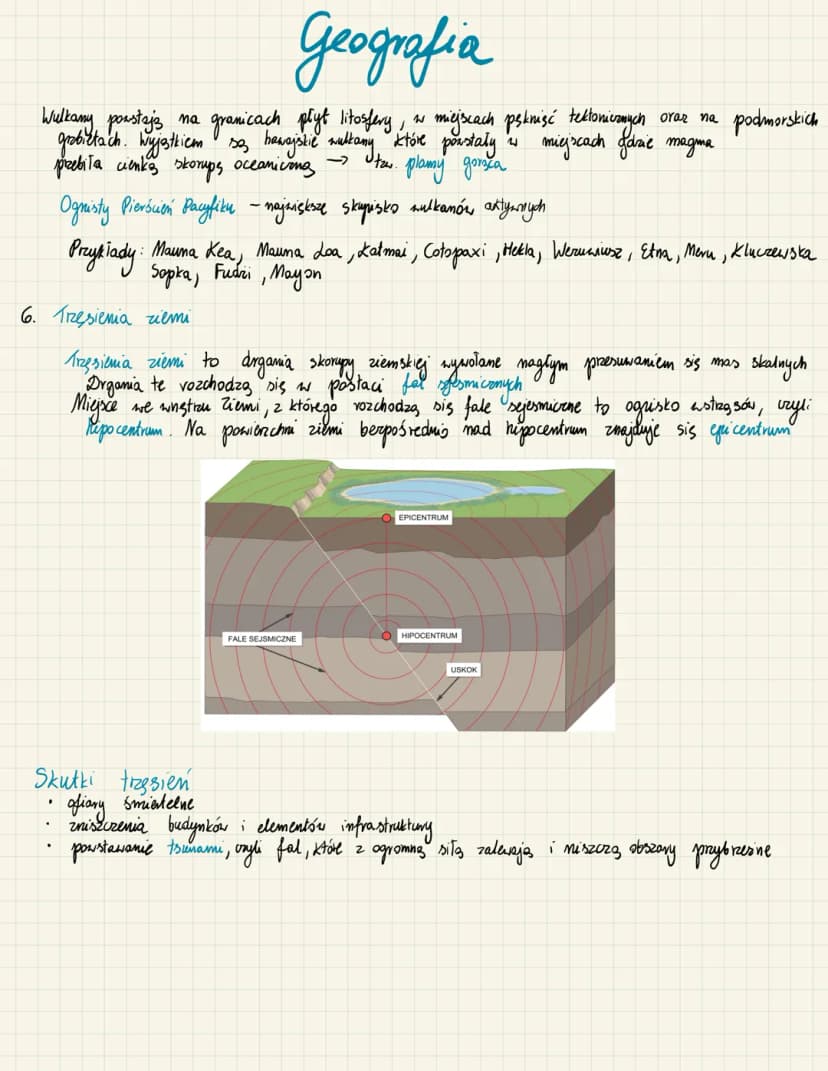 Geografia
Wulkany powstają na granicach płyt litosfery, w miejscach pęknięć tektonicznych oraz na podmorskich
grzbietach. Wyjątkiem są hawajskie wulkany które powstały w miejscach gdzie magma
przebiła cienką skorupę oceaniczną → tzw. plamy gorąca
Ognisty Pierścień Pacyfiku – największe skupisko wulkanów aktywnych
Przykłady: Mauna Kea, Mauna Loa, Katmai, Cotopaxi, Hekla, Wezuwiusz, Etna, Meru, Kluczewska
Sopka, Fudżi, Mayon
6. Trzęsienia ziemi
Trzęsienia ziemi to drgania skorupy ziemskiej wywołane nagłym przesuwaniem się mas skalnych
Drgania te rozchodzą się w postaci fal sejsmicznych
Miejsce we wnętrzu Ziemi, z którego rozchodzą się fale sejesmiczne to ognisko wstrząsów, czyli
hipocentrum. Na powierzchni ziemi bezpośrednio nad hipocentrum znajduje się epicentrum
EPICENTRUM
FALE SEJSMICZNE
HIPOCENTRUM
USKOK
Skutki trzęsień
• ofiary śmiertelne
• zniszczenia budynków i elementów infrastruktury
• powstawanie tsunami, czyli fal, które z ogromną siłą zalewają i niszczą obszary przybrzeżne